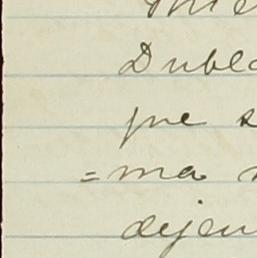 Duble
pue s
=ma
dejen